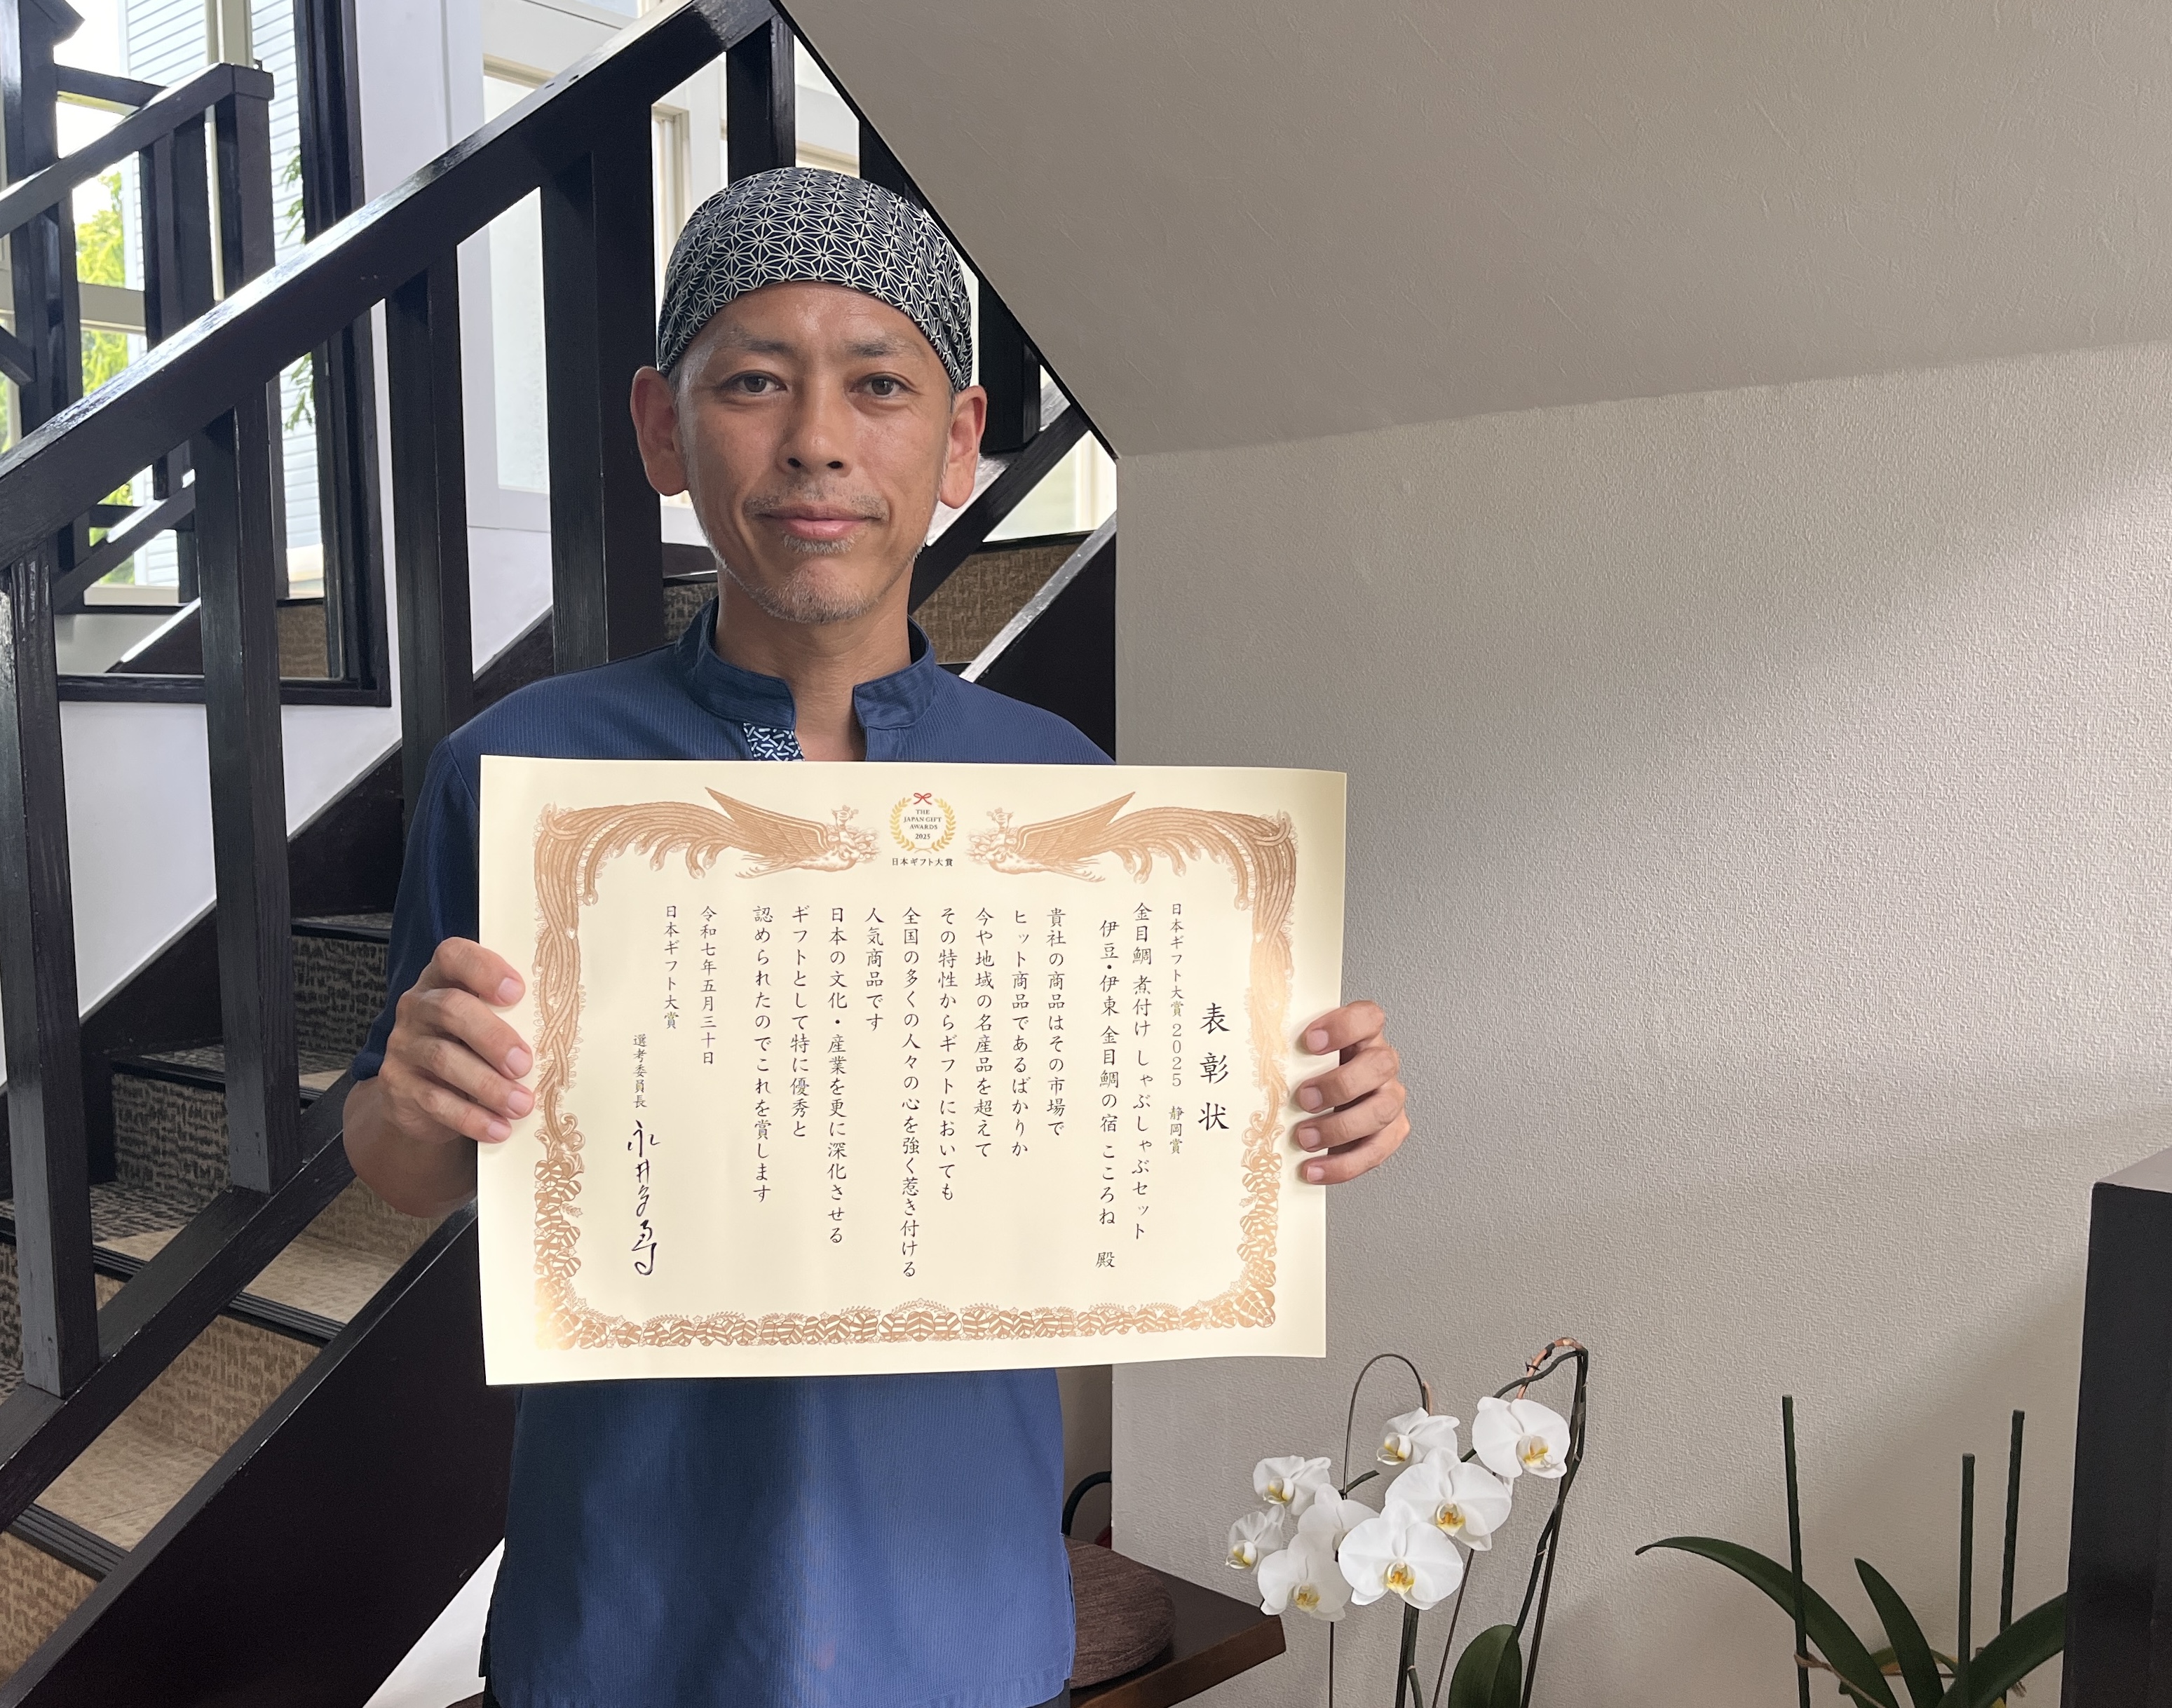 THE
JAPAN GIFT
AWARDS
2025
日本ギフト大賞
表彰状
日本ギフト大賞2025 静岡賞
金目鯛 煮付け しゃぶしゃぶセット
伊豆・伊東 金目鯛の宿 こころね 殿
貴社の商品はその市場で
ヒット商品であるばかりか
今や地域の名産品を超えて
その特性からギフトにおいても
全国の多くの人々の心を強く惹き付ける
人気商品です
日本の文化・産業を更に深化させる
ギフトとして特に優秀と
認められたのでこれを賞します
令和七年五月三十日
日本ギフト大賞
選考委員長 永井多